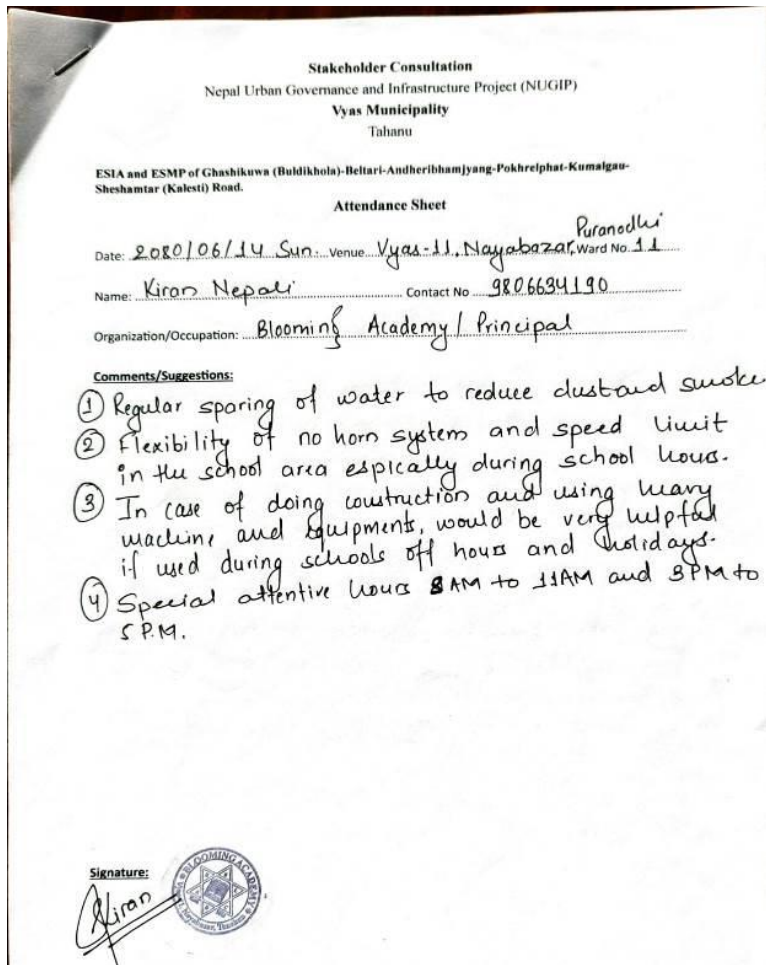 Stakeholder Consultation
Nepal Urban Governance and Infrastructure Project (NUGIP)
Vyas Municipality
Tahanu
ESIA and ESMP of Ghashikuwa (Buldikhola)-Beltari-Andheribhamjyang-Pokhrelphat-Kumalgau-
Sheshamtar (Kalesti) Road.
Attendance Sheet
Puranodhi
Date: 2080/06/14 Sun. Venue Vyas-11, Nayabazar, Ward No. 11
Name: Kiran Nepali Contact No 9806634190
Organization/Occupation: Blooming Academy / Principal
Comments/Suggestions:
1 Regular sparing of water to reduce dust and smoke
2 Flexibility of no horn system and speed limit
in the school area espically during school hours.
3 In case of doing construction and using heavy
machine and equipments, would be very helpful
if used during schools off hours and holidays.
4 Special attentive hours 8 AM to 11AM and 3PM to
5 P.M.
Signature:
Kiran
BLOOMING ACADEMY